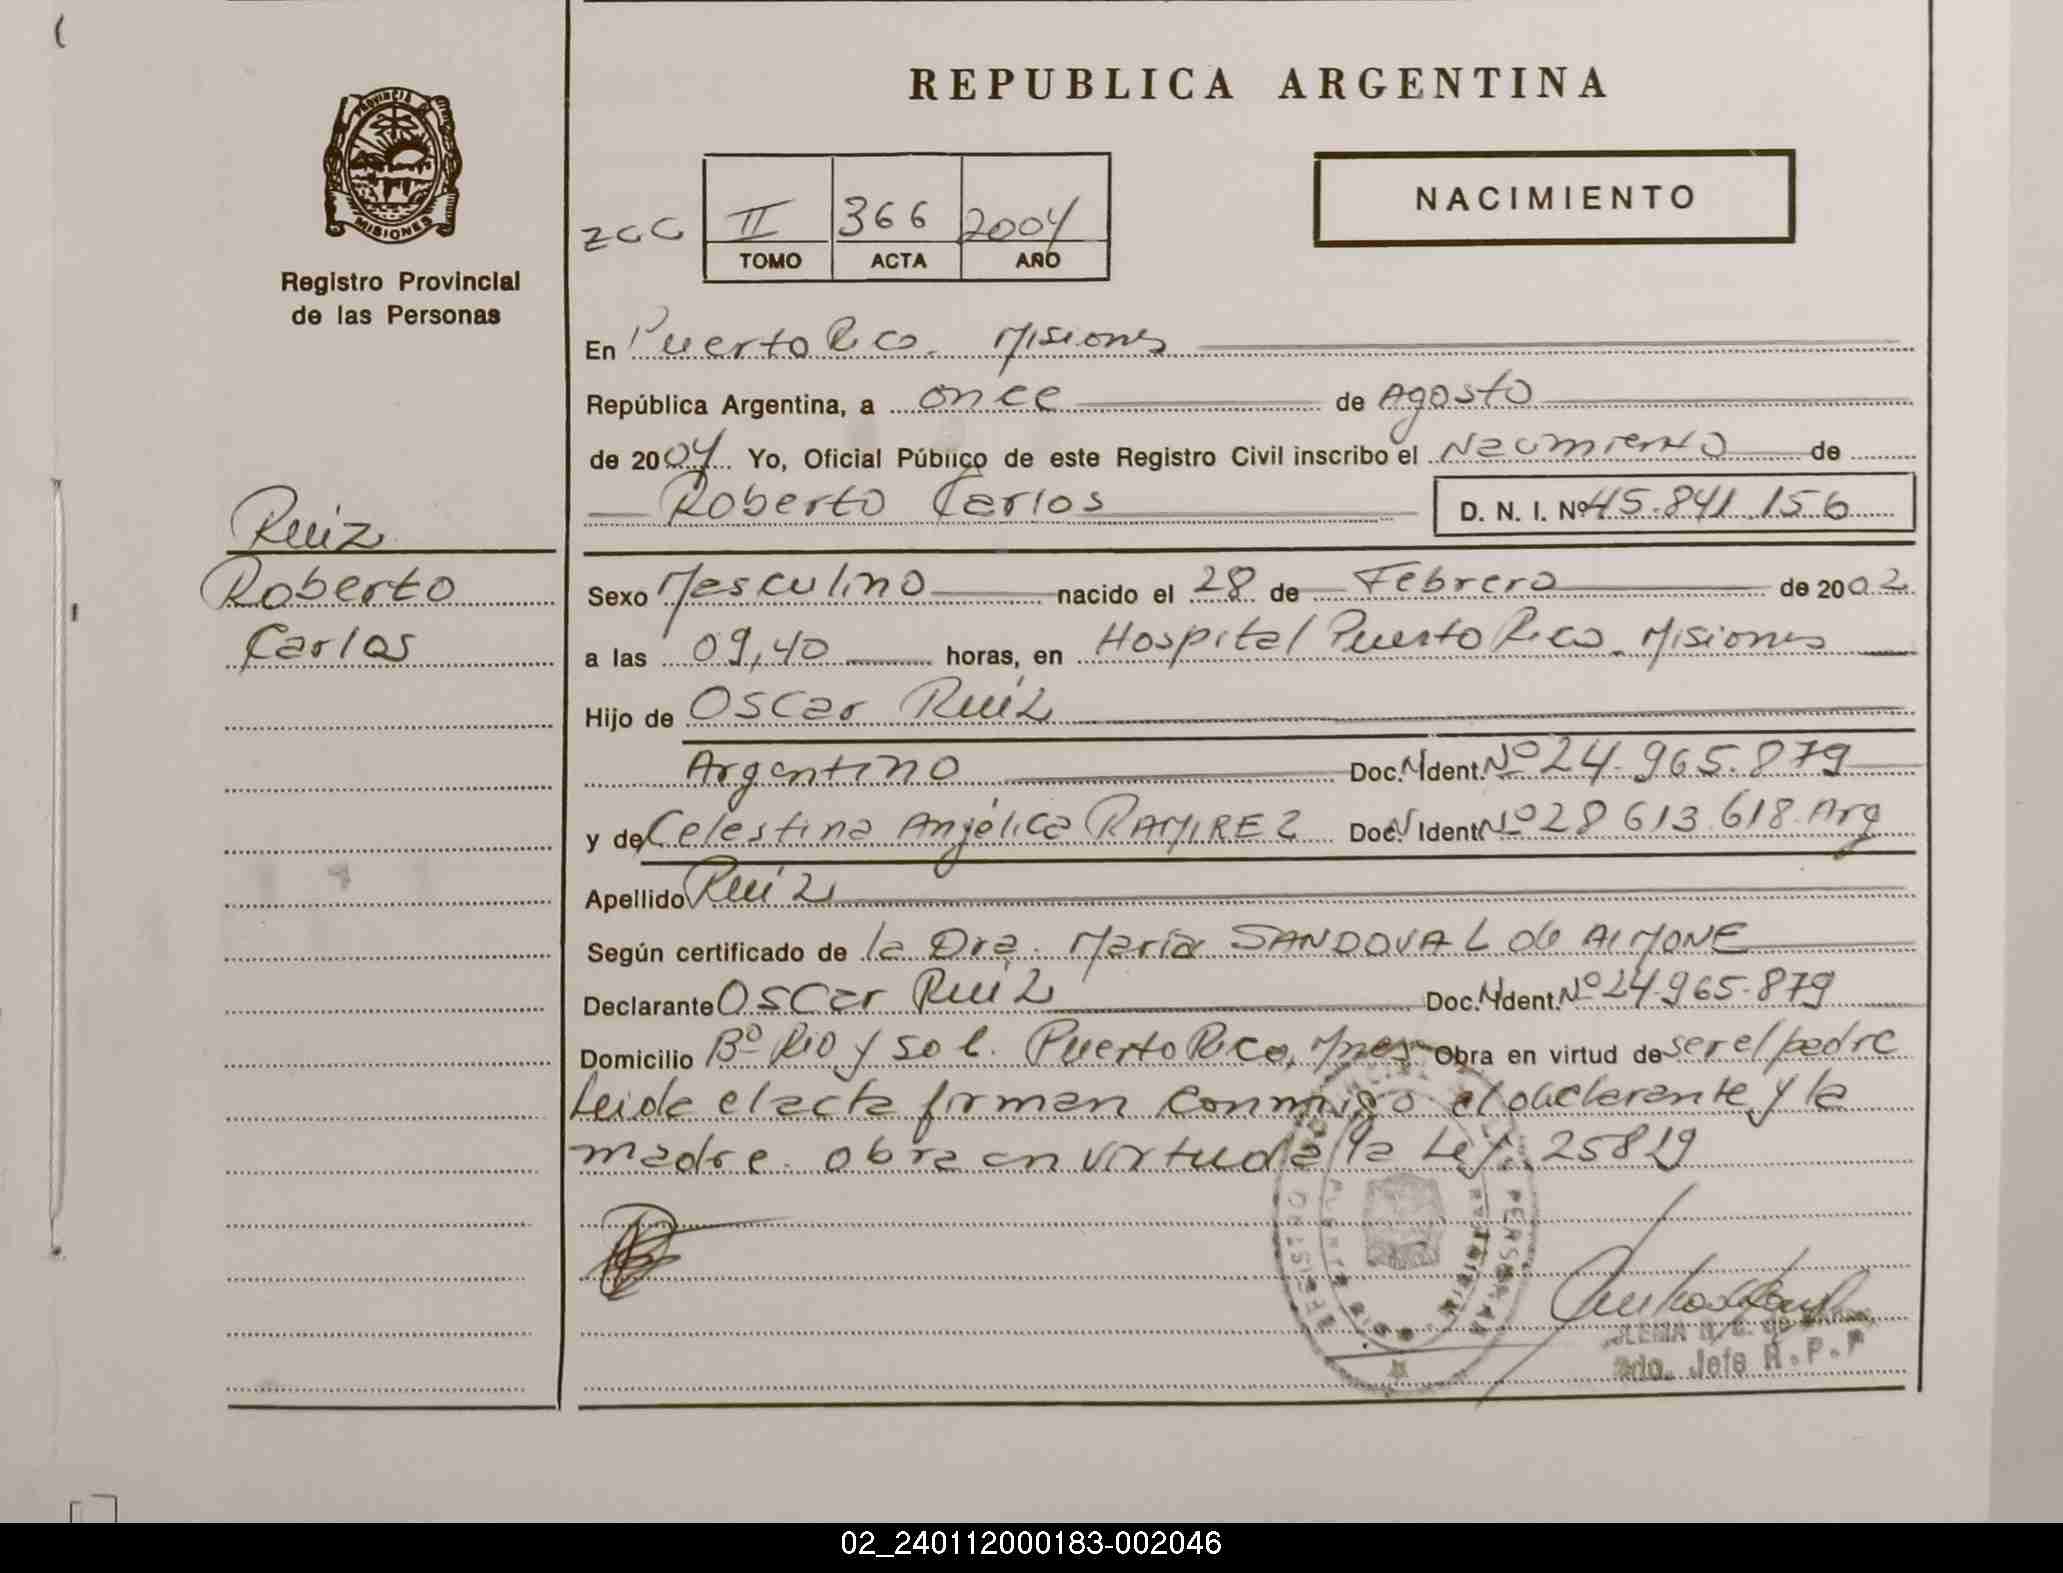 REPUBLICA ARGENTINA
PROVINCIA
MISIONES
Registro Provincial
de las Personas
II 366 2004
TOMO ACTA AÑO
NACIMIENTO
En Puerto Rico. Misiones
República Argentina, a once de Agosto
de 2004. Yo, Oficial Público de este Registro Civil inscribo el Nacimiento de
Roberto Carlos D. N. I. Nº 45.841.156
Ruiz
Roberto
Carlos
Sexo Masculino nacido el 28 de Febrero de 2002.
a las 09,40 horas, en Hospital Puerto Rico. Misiones
Hijo de Oscar Ruiz
Argentino Doc. Ident. Nº 24.965.879
y de Celestina Angélica RAMIREZ Doc. Ident. Nº 28.613.618. Arg
Apellido Ruiz
Según certificado de la Dra. María SANDOVAL de AIMONE
Declarante Oscar Ruiz Doc. Ident. Nº 24.965.879
Domicilio Bº Rio y Sol. Puerto Rico, Mnes Obra en virtud de ser el padre
Leida el acta firman conmigo el declarante y la
madre. Obra en virtud a la Ley. 25819
Jefe R.P.P
02_240112000183-002046